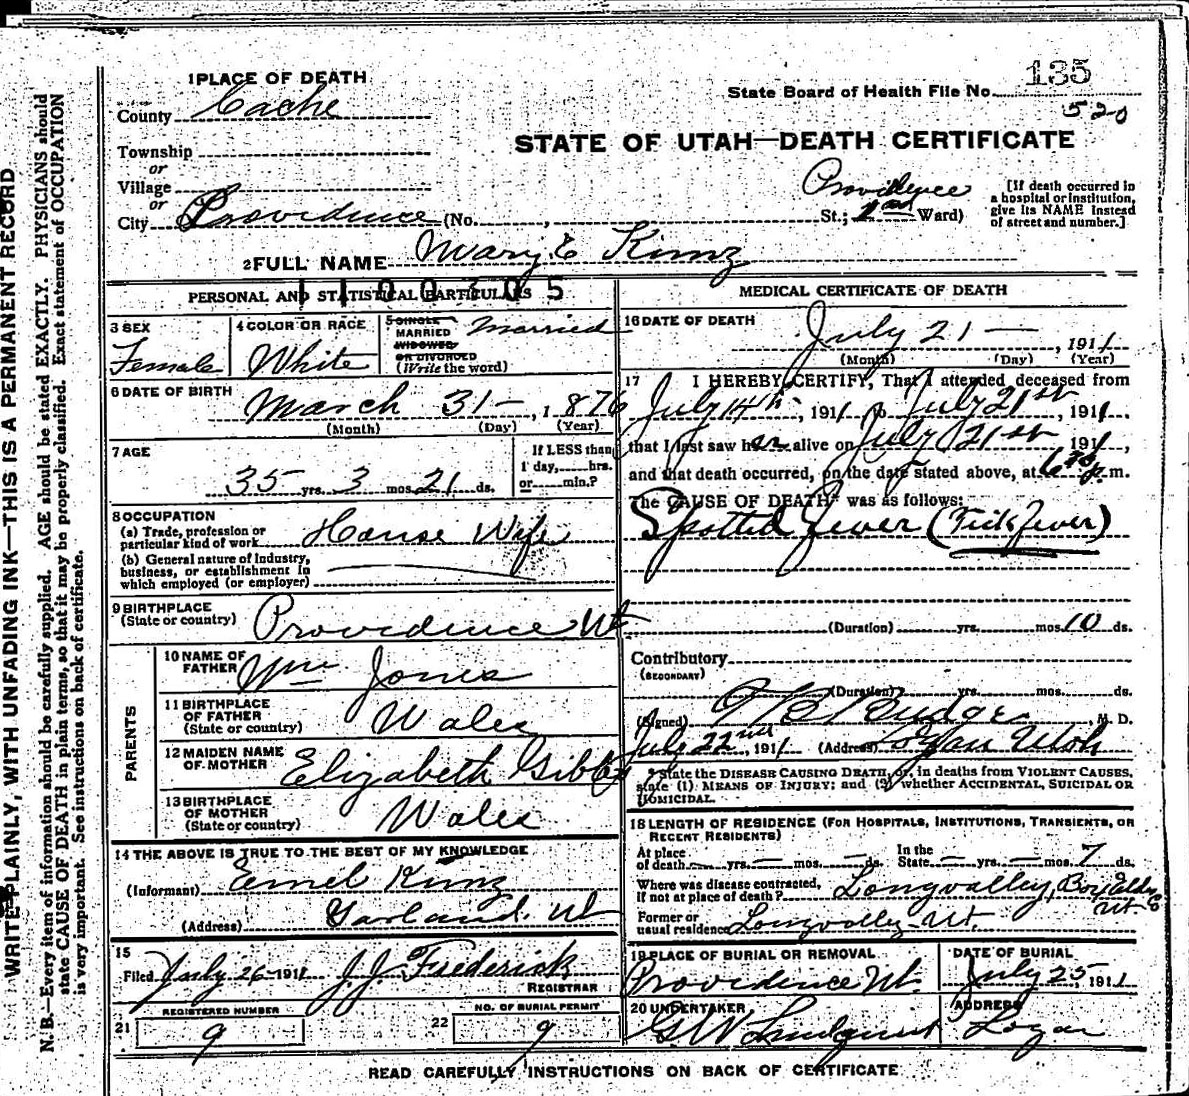 135
1 PLACE OF DEATH
State Board of Health File No.
County Cache
520
STATE OF UTAH—DEATH CERTIFICATE
Township
or
Village
or
City Providence (No. , St.; Providence 2nd Ward)
[If death occurred in
a hospital or institution,
give its NAME instead
of street and number.]
2 FULL NAME Mary E Kunz
1100305
PERSONAL AND STATISTICAL PARTICULARS
3 SEX
Female
4 COLOR OR RACE
White
5 SINGLE
MARRIED
WIDOWED
OR DIVORCED
(Write the word)
Married
6 DATE OF BIRTH
March 31 — , 1876
(Month) (Day) (Year)
7 AGE
35 yrs. 3 mos. 21 ds.
If LESS than
1 day, hrs.
or min.?
8 OCCUPATION
(a) Trade, profession or
particular kind of work House Wife
(b) General nature of industry,
business, or establishment in
which employed (or employer)
9 BIRTHPLACE
(State or country) Providence Ut
PARENTS
10 NAME OF
FATHER Wm Jones
11 BIRTHPLACE
OF FATHER
(State or country) Wales
12 MAIDEN NAME
OF MOTHER Elizabeth Gibbs
13 BIRTHPLACE
OF MOTHER
(State or country) Wales
14 THE ABOVE IS TRUE TO THE BEST OF MY KNOWLEDGE
(Informant) Kunz
(Address) Garland, Ut
15
Filed July 26 - 1911 J. J. Frederick
REGISTRAR
21 REGISTERED NUMBER
9
22 NO. OF BURIAL PERMIT
9
MEDICAL CERTIFICATE OF DEATH
16 DATE OF DEATH
July 21 — , 1911
(Month) (Day) (Year)
17 I HEREBY CERTIFY, That I attended deceased from
July 14th, 1911 to July 21st, 1911,
that I last saw her alive on July 21st, 1911,
and that death occurred, on the date stated above, at 6 p.m.
The CAUSE OF DEATH* was as follows:
Spotted Fever (Tick Fever)
(Duration) yrs. mos. 10 ds.
Contributory
(SECONDARY)
(Duration) yrs. mos. ds.
(Signed) Budge, M. D.
July 22nd, 1911 (Address) Logan Utah
*State the DISEASE CAUSING DEATH, or, in deaths from VIOLENT CAUSES,
state (1) MEANS OF INJURY; and (2) whether ACCIDENTAL, SUICIDAL OR
HOMICIDAL.
18 LENGTH OF RESIDENCE (FOR HOSPITALS, INSTITUTIONS, TRANSIENTS, OR
RECENT RESIDENTS)
At place
of death — yrs. — mos. — ds. In the
State — yrs. — mos. 7 ds.
Where was disease contracted,
If not at place of death? Longvalley, Box Elder
Ut
Former or
usual residence Longvalley Ut.
19 PLACE OF BURIAL OR REMOVAL
Providence Ut.
DATE OF BURIAL
July 25, 1911
20 UNDERTAKER
G W Lindquist
ADDRESS
Logan
READ CAREFULLY INSTRUCTIONS ON BACK OF CERTIFICATE
WRITE PLAINLY, WITH UNFADING INK—THIS IS A PERMANENT RECORD
N. B.—Every item of information should be carefully supplied. AGE should be stated EXACTLY. PHYSICIANS should
state CAUSE OF DEATH in plain terms, so that it may be properly classified. Exact statement of OCCUPATION
is very important. See instructions on back of certificate.